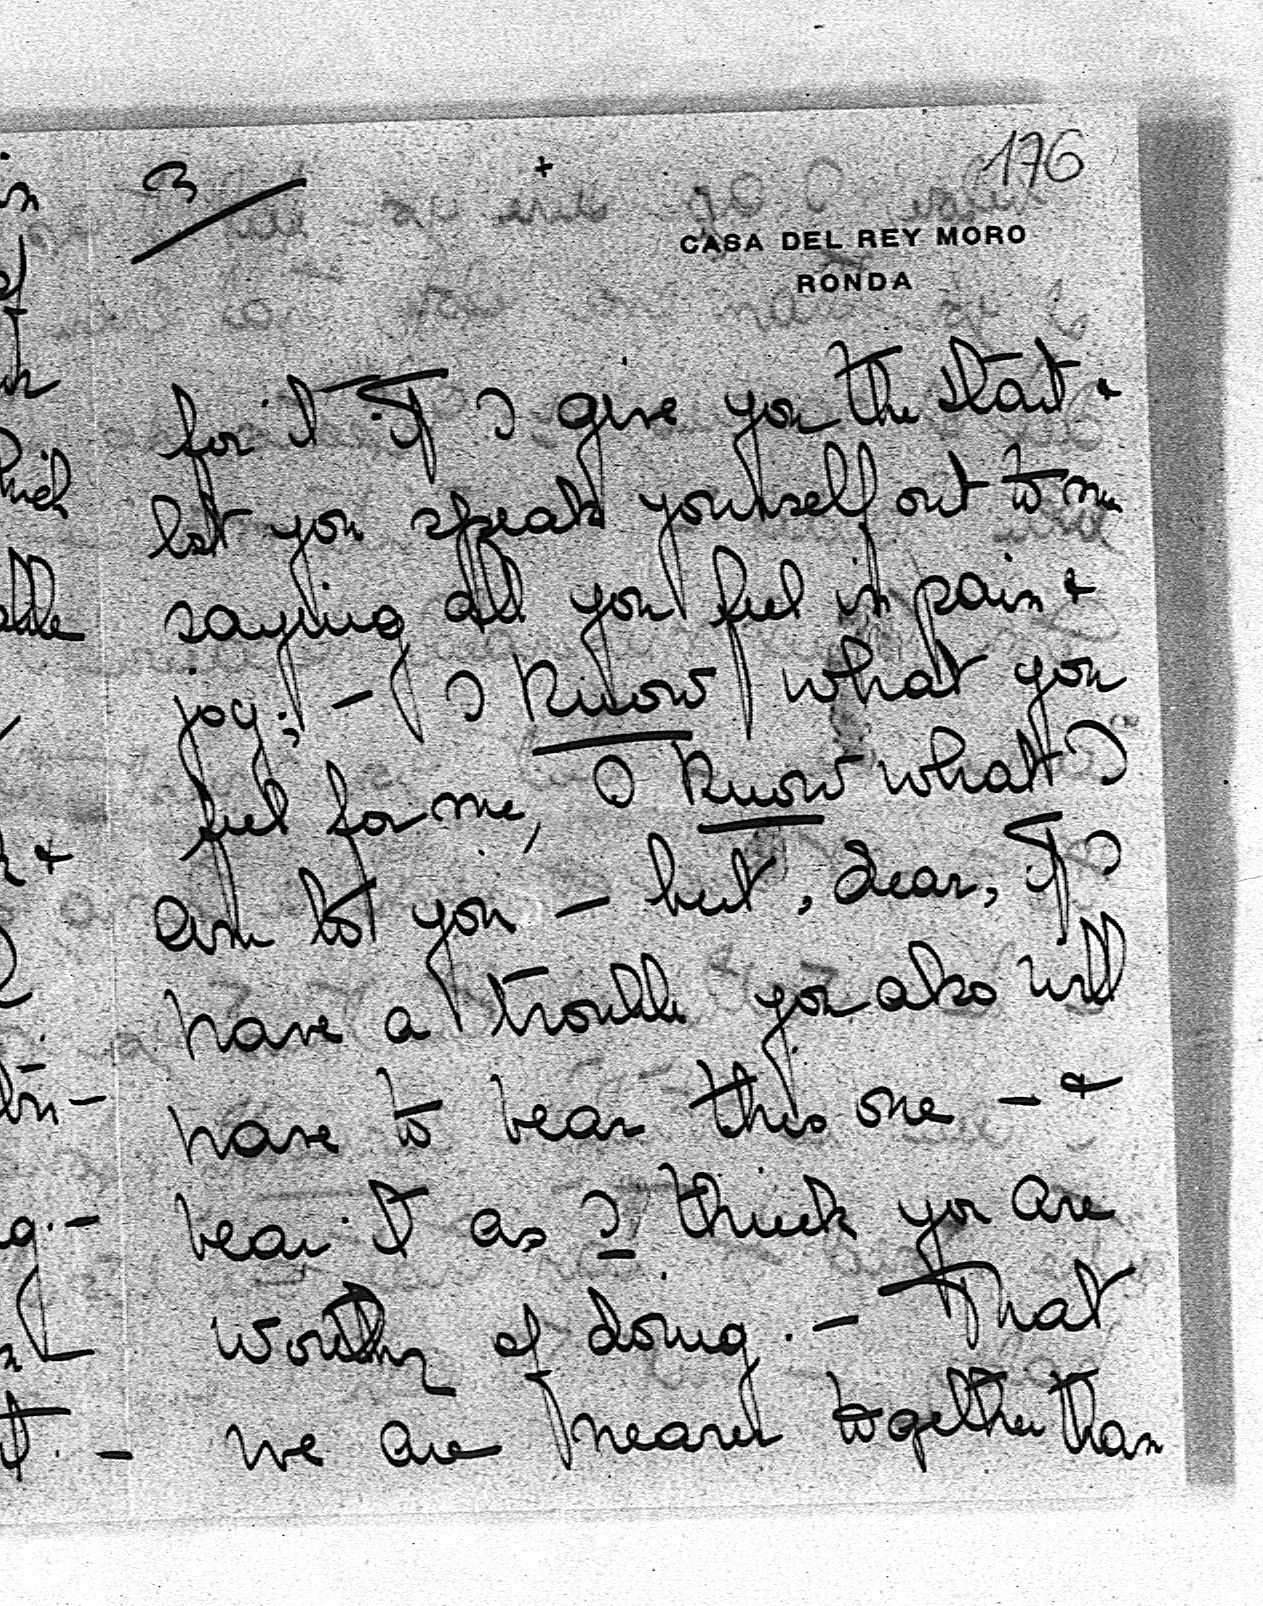 3
+
176
CASA DEL REY MORO
RONDA
for it if I give you the start &
let you speak yourself out to me
saying all you feel in pain &
joy; – I know what you
feel for me, I know what I
am to you – but, dear, if I
have a trouble you also will
have to bear this one – &
bear it as I think you are
worthy of doing. – That
we are nearer together than